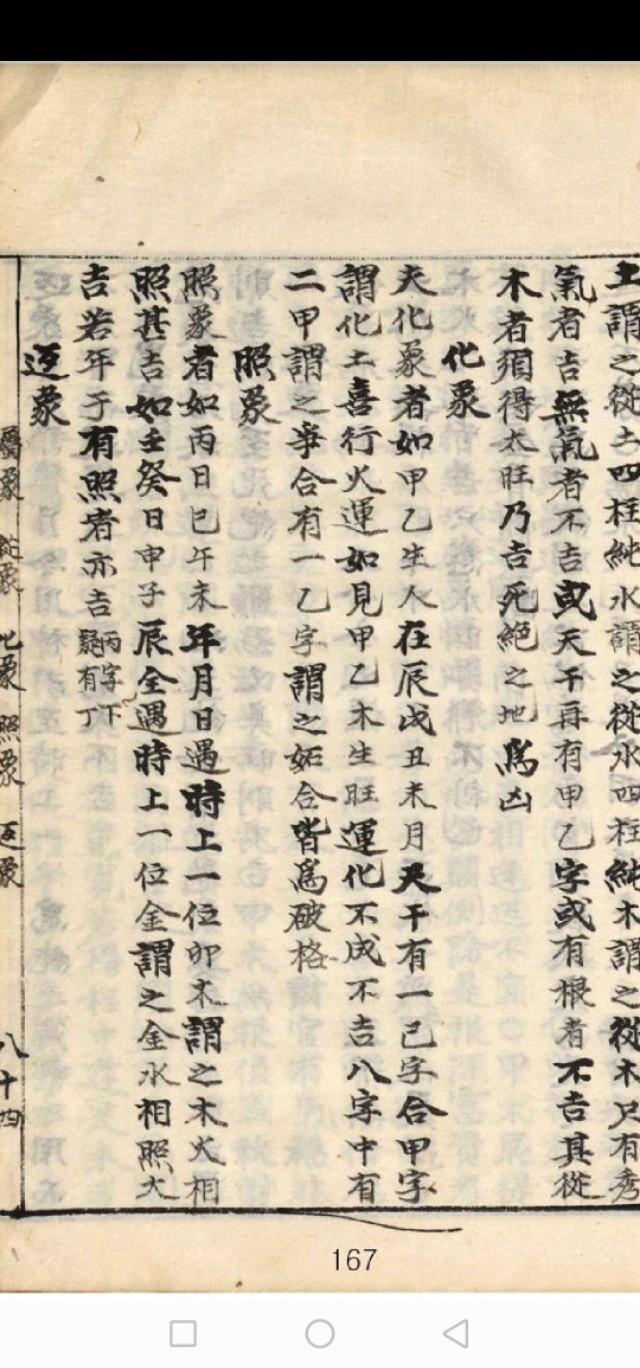 土謂之從土四柱純水謂之從水四柱純木謂之從木只有秀
氣者吉無氣者不吉或天干再有甲乙字或有根者不吉其從
木者須得太旺乃吉死絕之地爲凶
化象
夫化象者如甲乙生人在辰戌丑未月天干有一己字合甲字
謂化土喜行火運如見甲乙木生旺運化不成不吉八字中有
二甲謂之爭合有一乙字謂之妬合皆爲破格
照象
照象者如丙日巳午未年月日遇時上一位卯木謂之木火相
照甚吉如壬癸日申子辰全遇時上一位金謂之金水相照大
吉若年子有照者亦吉丙字下疑有丁
返象
屬象 從象 化象 照象 返象 八十四
167